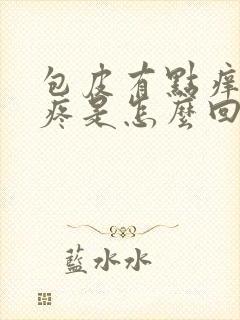 包皮有點痒
疼是怎麼回
藍水水